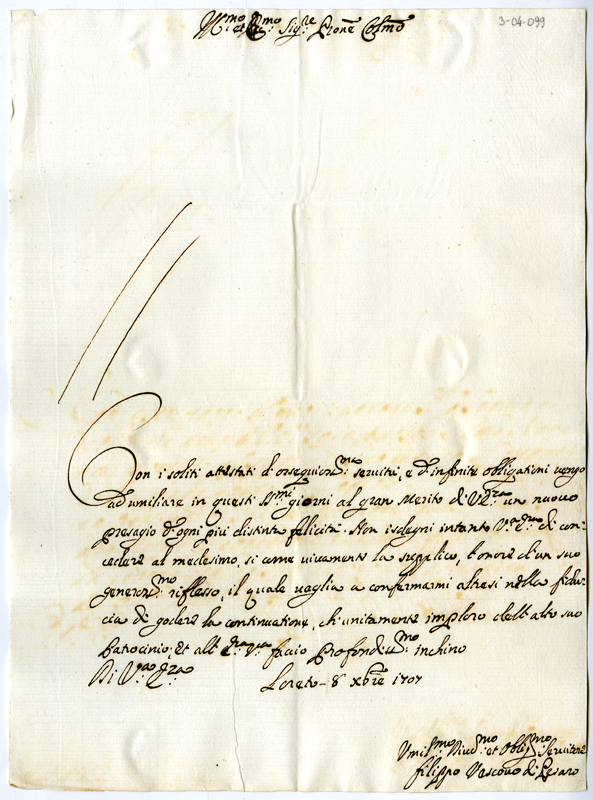 Ill.mo et R.mo Sig.re Prone Colmo
3-04-099
Con i soliti attestati d'ossequios.ma servitù, e d'infinite obligationi vengo
ad umiliare in questi S.mi giorni al gran Merito di V. Ecc.za un nuovo
presagio d'ogni più distinta felicità. Non isdegni intanto V.a Ecc.za di con-
cedere al medesimo, si come vivamente la supplico, l'onore d'un suo
generos.mo riflesso, il quale vaglia a confermarmi altresi nella fidu-
cia di godere la continuatione, ch'unitamente imploro dell'alto suo
Patrocinio, et all' Ecc.za V.a faccio profondiss.mo inchino
Di V.a Ecc.za Loreto 8 Xbre 1707
Umil.mo Divot.mo et Oblig.mo Servitore
Filippo Vescovo di Pesaro